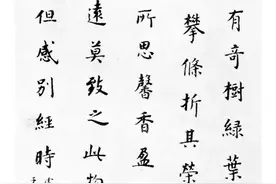 有奇樹緑葉
攀條折其榮
所思馨香盈
遠莫致之此物
但感別經時